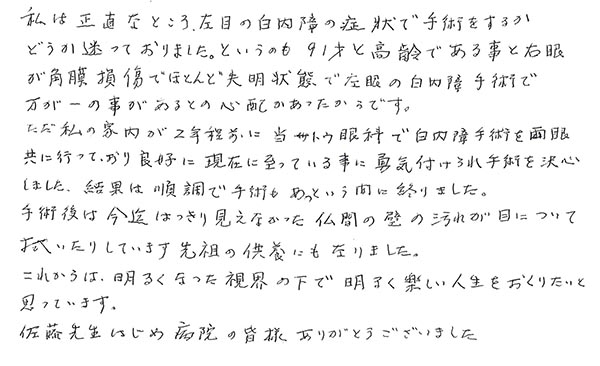 私は正直なところ、左目の白内障の症状で手術をするか
どうか迷っておりました。というのも91才と高齢である事と右眼
が角膜損傷でほとんど失明状態で左眼の白内障手術で
万が一の事があるとの心配があったからです。
ただ私の家内が2年程前に当サトウ眼科で白内障手術を両眼
共に行っており良好に現在に至っている事に勇気付けられ手術を決心
しました。結果は順調で手術もあっという間に終りました。
手術後は今迄はっきり見えなかった仏間の壁の汚れが目について
拭いたりしています先祖の供養にもなりました。
これからは、明るくなった視界の下で明るく楽しい人生をおくりたいと
思っています。
佐藤先生はじめ病院の皆様ありがとうございました